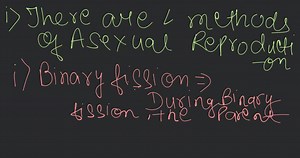 i) There are 4 methods
of Asexual Reproducti
on
i) Binary fission ⇒
fission During Binary
, the Parent